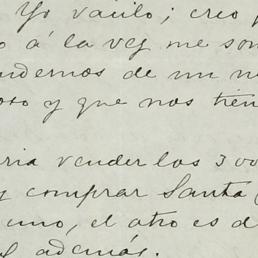 Yo vailo; creo
o á la vez me son
udemos de un n
oto y que nos tien
ria vender los 300
y comprar Santa
uno, el otro es d
además.